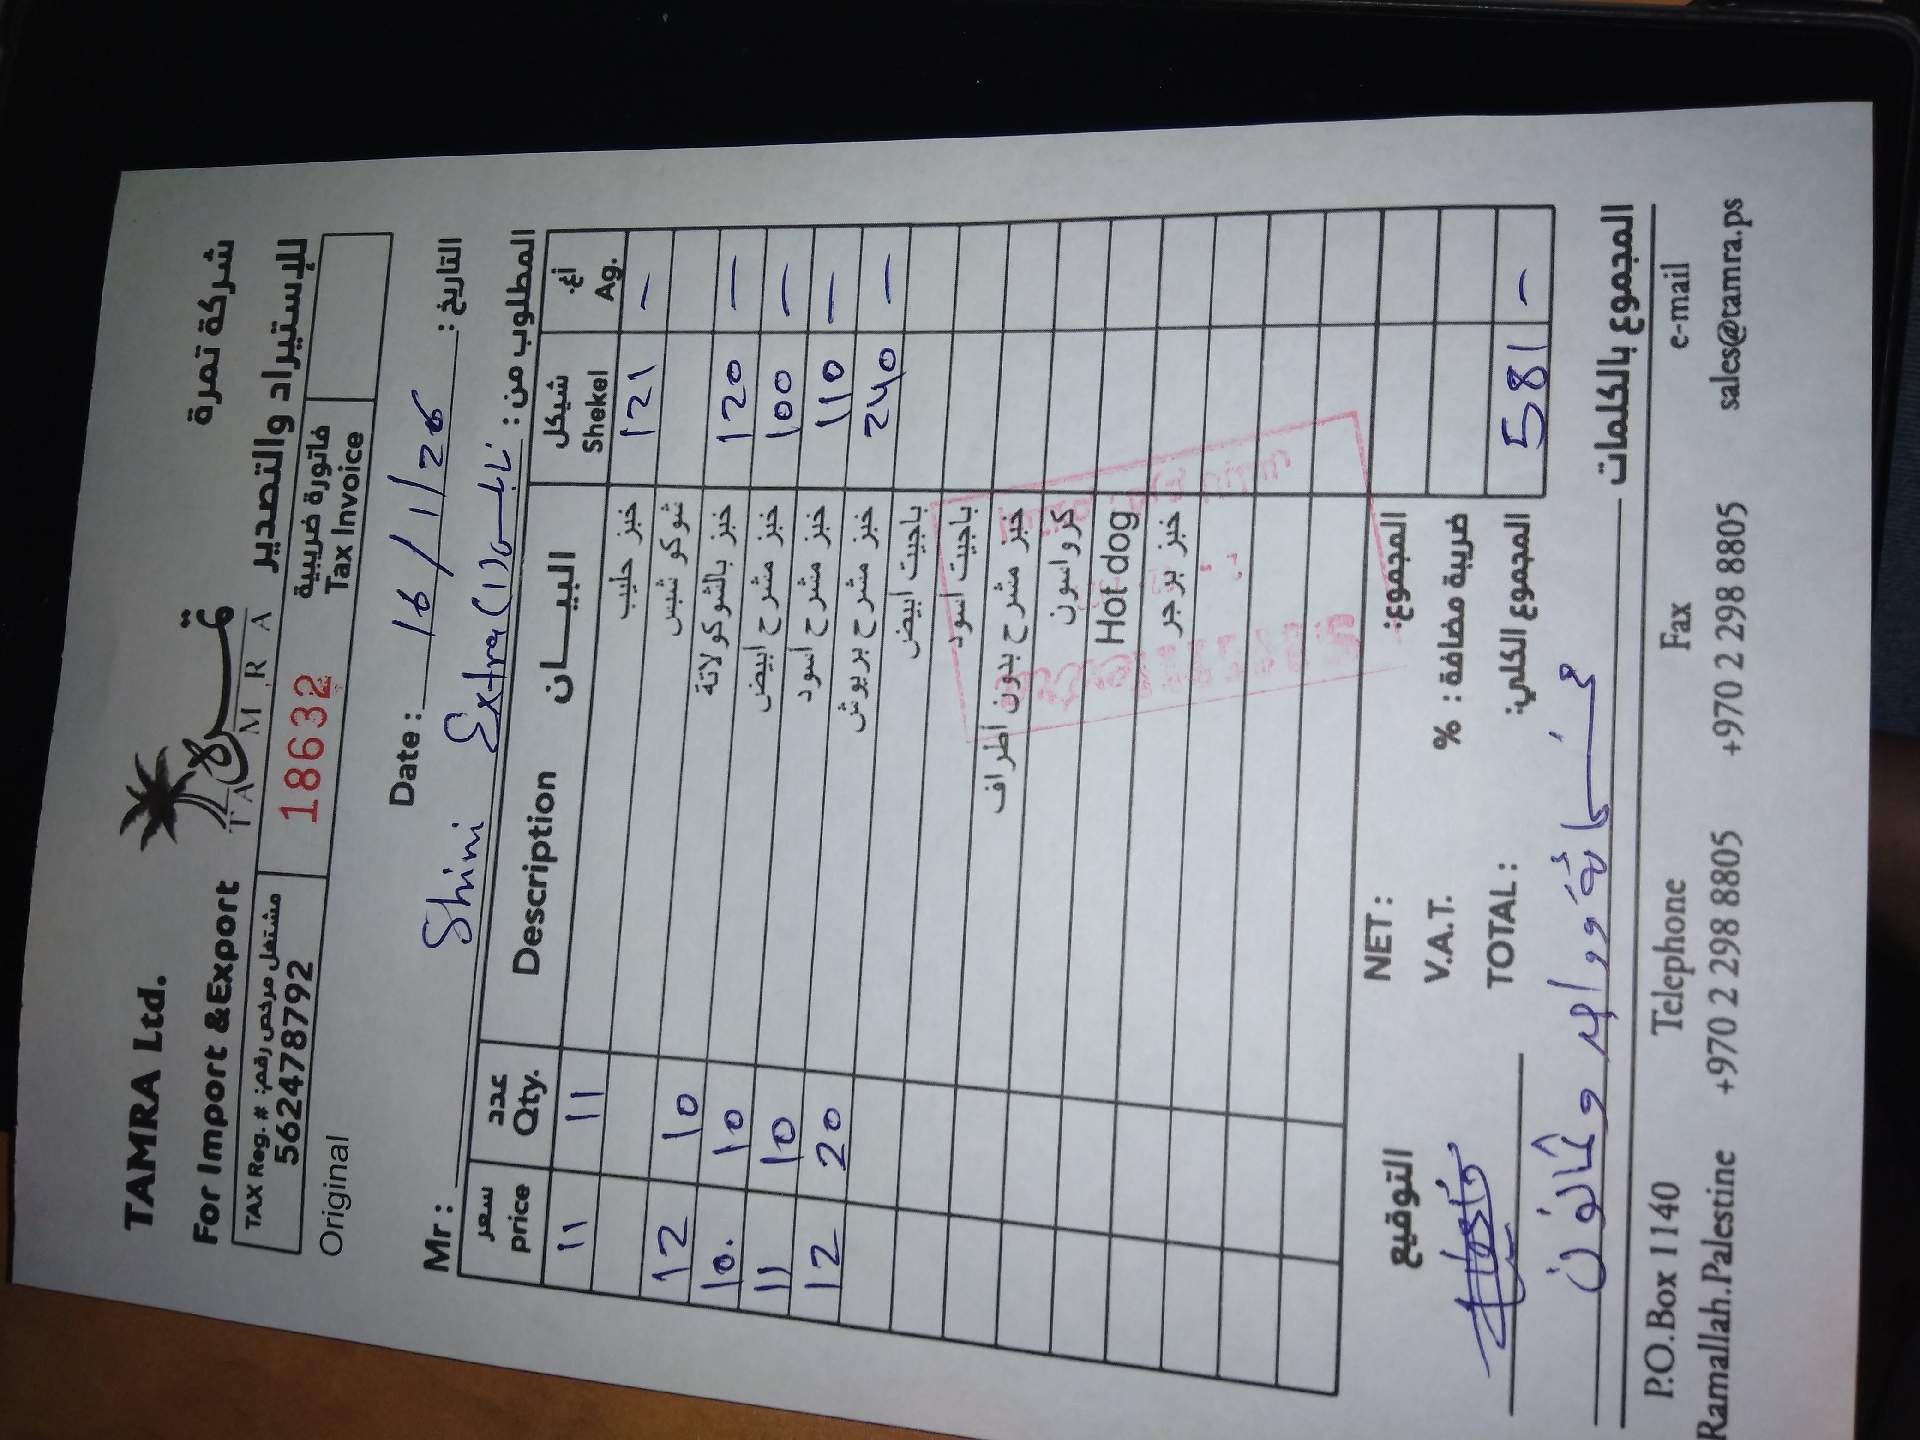 TAMRA Ltd. شركة تمرة
For Import & Export تمرة للإستيراد والتصدير
TAMRA
TAX Reg. # مشتغل مرخص رقم: 562478792 18632 فاتورة ضريبية Tax Invoice
Original
Date : 16/1/26 التاريخ :
Mr : Shini Extra (1) نابلس المطلوب من :
سعر price عدد Qty. Description البيـــان شيكل Shekel أغ. Ag.
11 11 خبز حليب 121 —
شوكو شبس
12 10 خبز بالشوكولاتة 120 —
10. 10 خبز مشرح ابيض 100 —
11 10 خبز مشرح اسود 110 —
12 20 خبز مشرح بريوش 240 —
باجيت ابيض
باجيت اسود
خبز مشرح بدون أطراف
كرواسون
Hot dog
خبز برجر
التوقيع NET : المجموع:
V.A.T. % ضريبة مضافة :
TOTAL : المجموع الكلي: 581 —
المجموع بالكلمات خمسمائة وواحد وثمانون
P.O.Box 1140 Telephone Fax e-mail
Ramallah.Palestine +970 2 298 8805 +970 2 298 8805 sales@tamra.ps